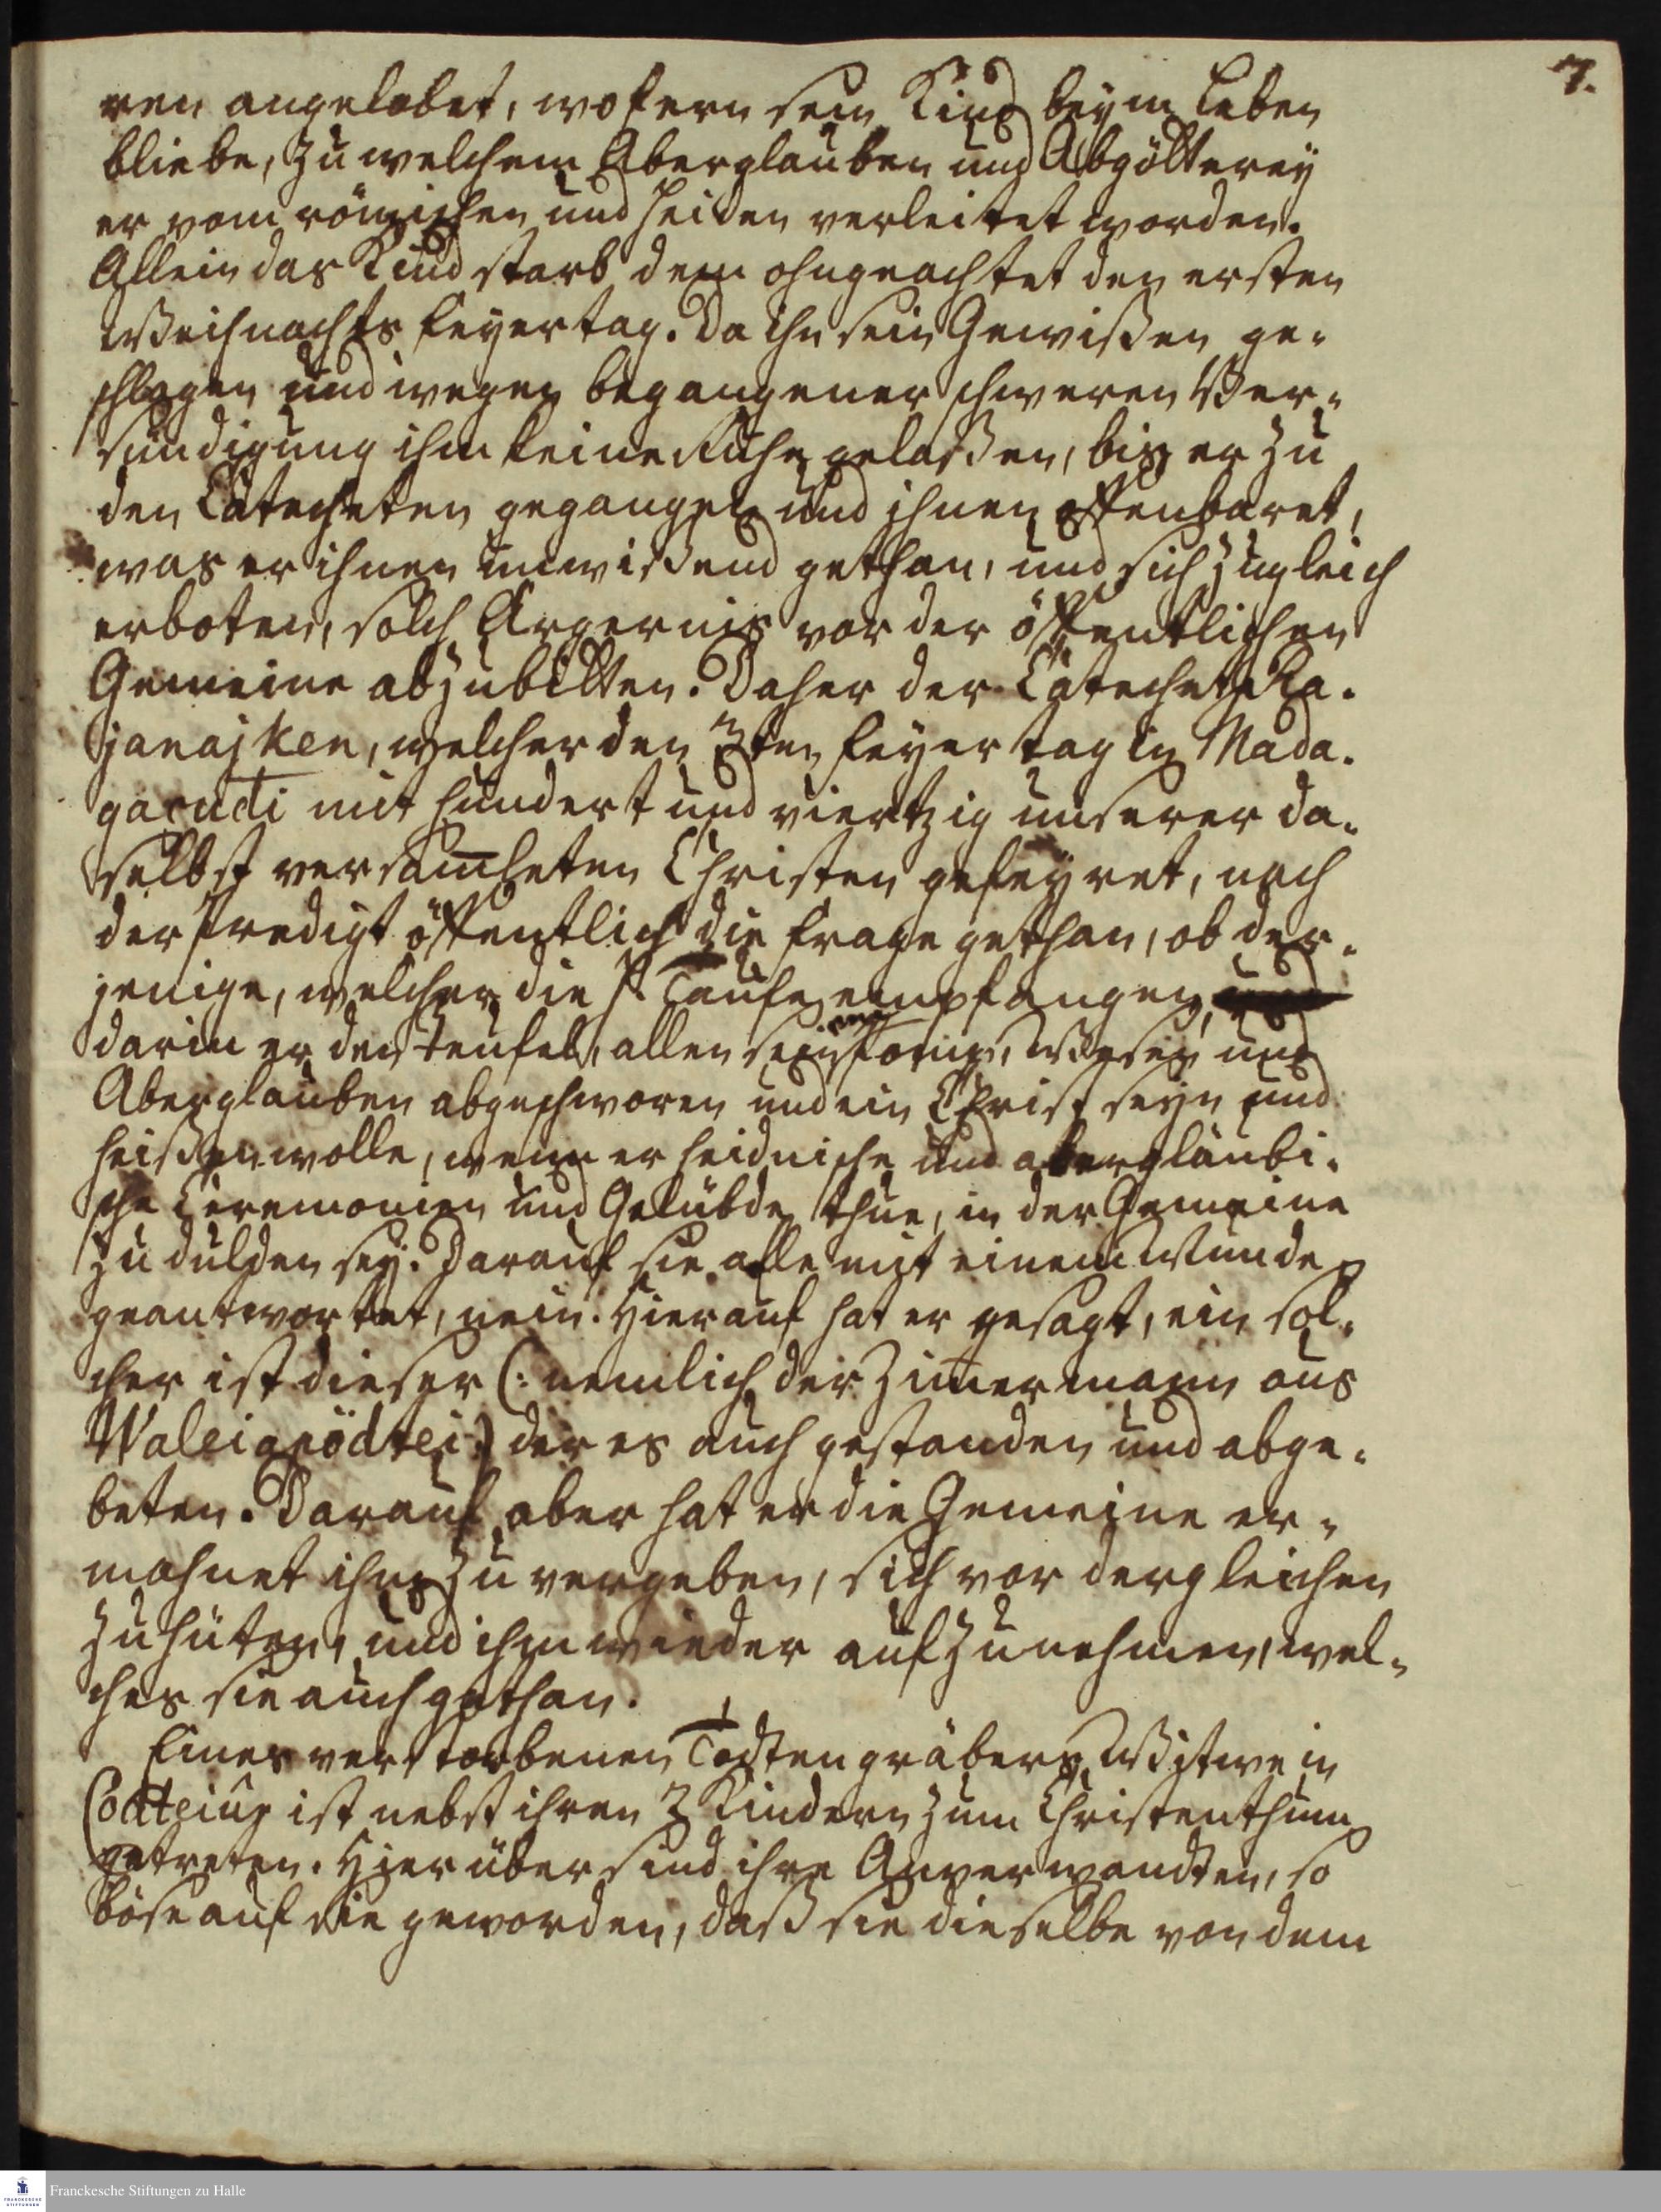 7.
ren angelobet, wofern sein Kind beym Leben
bliebe, zu welchem Aberglauben und Abgötterey
er vom römischen und Heiden verleitet worden.
Allein das Kind starb dem ohngeachtet den ersten
Weihnachts feyertag. Da ihn sein Gewißen ge-
schlagen und wegen begangener schweren Ver-
sündigung ihm keine Ruhe gelaßen, bis er zu
den Catecheten gegangen und ihnen offenbaret,
was er ihnen unwißend gethan, und sich zugleich
erboten, solch Ärgernis vor der öffentlichen
Gemeine abzubitten. Daher der Catechet Ra-
janaiken, welcher den 3ten feyertag in Mada-
garudi mit hundert und viertzig unserer da-
selbst versam̅leten Christen gefeyret, nach
der Predigt öffentlich die Frage gethan, ob der-
jenige, welcher die h. Taufe empfangen,
darin er den Teufel, allen seinem Wesen und
Aberglauben abgeschworen und ein Christ seyn und
heißen wolle, wenn er heidnische und abergläubi-
sche Ceremonien und Gelübde thue, in der Gemeine
zu dulden sey. Darauf sie alle mit einem Munde
geantwortet, nein. Hierauf hat er gesagt, ein sol-
cher ist dieser (: nemlich der Zim̅ermann aus
Waleiapödtei :) der es auch gestanden und abge-
beten. Darauf aber hat er die Gemeine er-
mahnet ihm zu vergeben, sich vor dergleichen
zu hüten, und ihn wieder aufzunehmen, wel-
ches sie auch gethan.
Eines verstorbenen Todtengräbers Witwe in
ist nebst ihren 3 Kindern zum Christenthum
getreten. Hierüber sind ihre Anverwandten, so
böse auf sie geworden, daß sie dieselbe von dem
Franckesche Stiftungen zu Halle
FRANCKESCHE
STIFTUNGEN